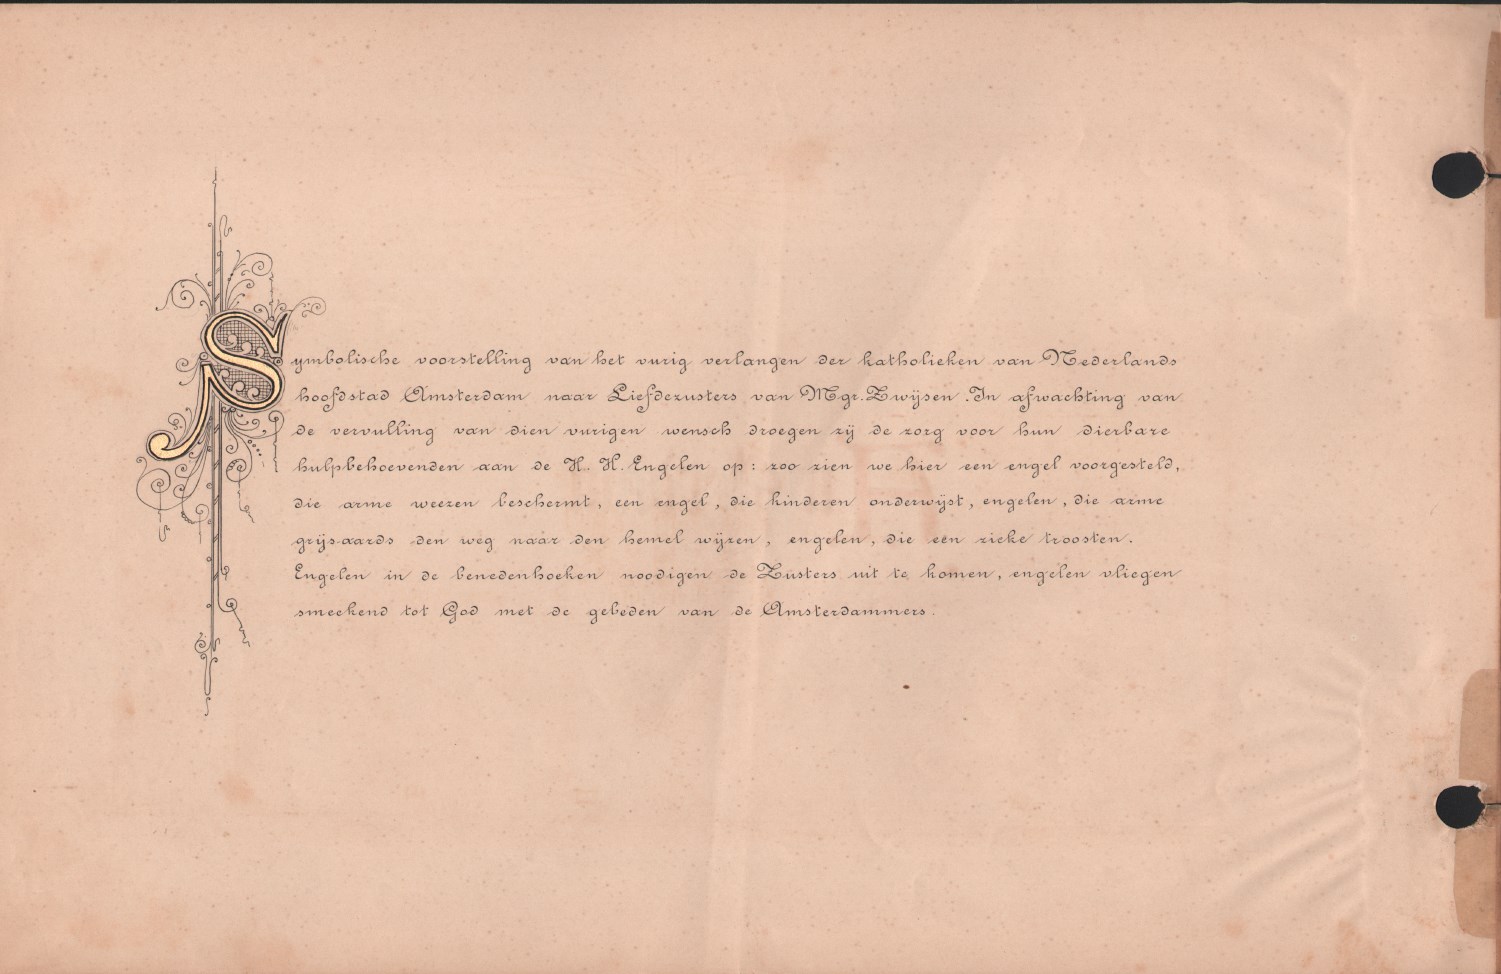 Symbolische voorstelling van het vurig verlangen der katholieken van Nederlands
hoofdstad Amsterdam naar Liefdezusters van Mgr. Zwijsen. In afwachting van
de vervulling van dien vurigen wensch droegen zij de zorg voor hun dierbare
hulpbehoevenden aan de H. H. Engelen op: zoo zien we hier een engel voorgesteld,
die arme weezen beschermt, een engel, die kinderen onderwijst, engelen, die arme
grijsaards den weg naar den hemel wijzen, engelen, die een zieke troosten.
Engelen in de benedenhoeken noodigen de Zusters uit te komen, engelen vliegen
smeekend tot God met de gebeden van de Amsterdammers.